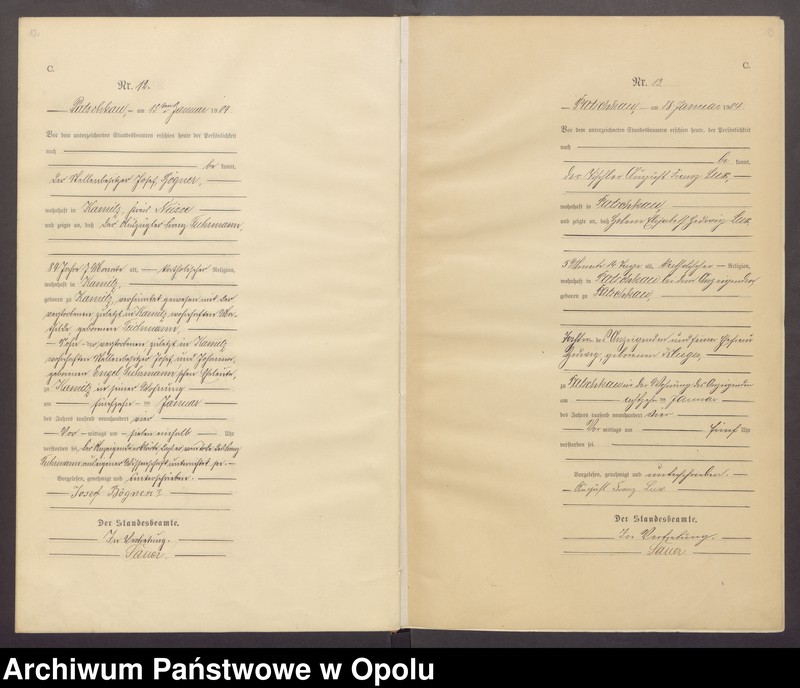 C.
Nr. 12.
Patschkau, am 15ten Januar 1904.
Vor dem unterzeichneten Standesbeamten erschien heute, der Persönlichkeit
nach
be kannt,
der Stellenbesitzer Josef Bögner,
wohnhaft in Kamitz, Kreis Neisse
und zeigte an, daß der Auszügler Franz Fuhrmann,
84 Jahre 7 Monate alt, katholischer Religion,
wohnhaft in Kamitz,
geboren zu Kamitz, verheiratet gewesen mit der
verstorbenen zuletzt in Kamitz wohnhaften
geborenen
Sohn der verstorbenen zuletzt in Kamitz
wohnhaften Stellenbesitzer Josef und Johanna,
geborenen Engel, Fuhrmann'schen Eheleute,
zu Kamitz in seiner Wohnung
am fünfzehnten Januar
des Jahres tausend neunhundert vier
Vor mittags um sieben einhalb Uhr
verstorben sei, der Anzeigende erklärte, daß er vom Tode des Franz
Fuhrmann aus eigener Wissenschaft unterrichtet sei.
Vorgelesen, genehmigt und unterschrieben.
Josef Bögner
Der Standesbeamte.
In Vertretung.
Sauer
C.
Nr. 13
Patschkau, am 18 Januar 1904.
Vor dem unterzeichneten Standesbeamten erschien heute, der Persönlichkeit
nach
be kannt,
der Tischler August Franz Lux,
wohnhaft in Patschkau
und zeigte an, daß Helene Elisabeth Hedwig Lux,
5 Monate 14 Tage alt, katholischer Religion,
wohnhaft in Patschkau bei dem Anzeigenden
geboren zu Patschkau,
Tochter des Anzeigenden und seiner Ehefrau
Hedwig, geborenen
zu Patschkau in der Wohnung des Anzeigenden
am achtzehnten Januar
des Jahres tausend neunhundert vier
Vor mittags um fünf Uhr
verstorben sei.
Vorgelesen, genehmigt und unterschrieben.
August Franz Lux
Der Standesbeamte.
In Vertretung.
Sauer
Archiwum Państwowe w Opolu